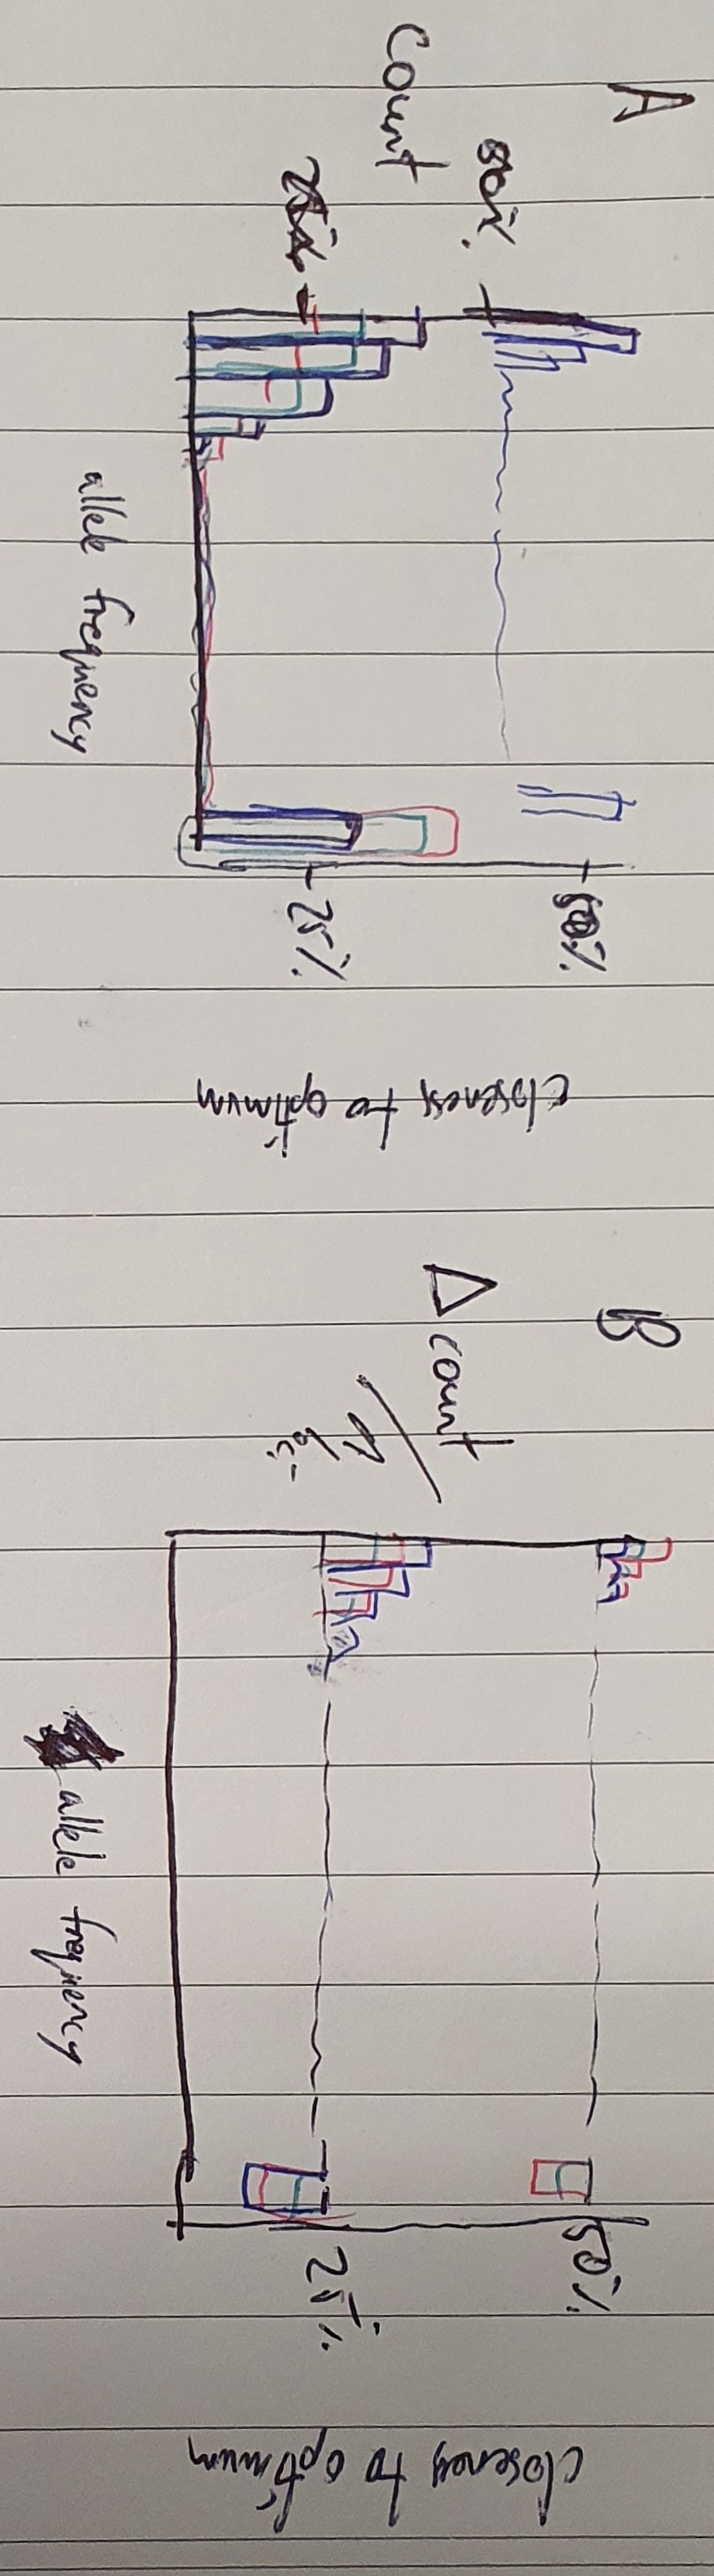 A
50%
50%
count
25%
25%
closeness to optimum
allele frequency
B
50%
Δ count
/
loci
25%
closeness to optimum
allele frequency